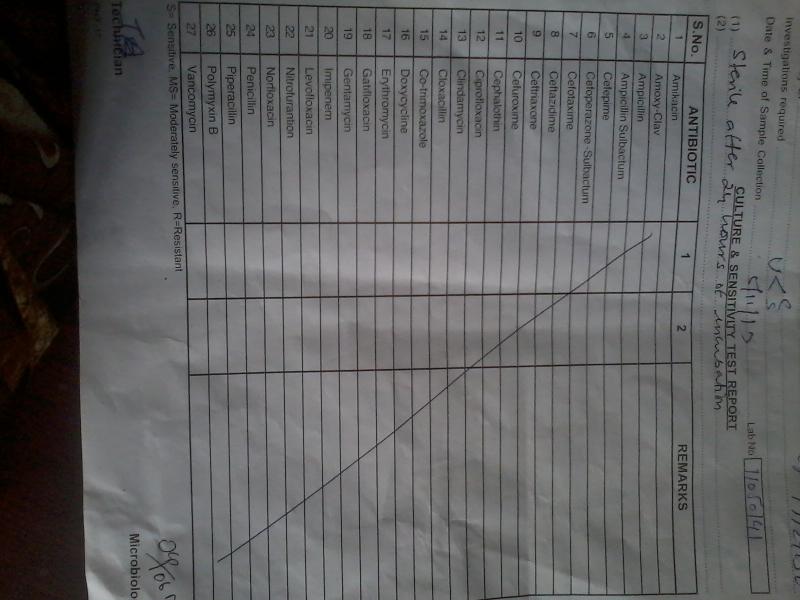 Investigations required
Date & Time of Sample Collection
Lab No
CULTURE & SENSITIVITY TEST REPORT
(1) Sterile after 24 hours of incubation
(2)
S.No. ANTIBIOTIC 1 2 REMARKS
1 Amikacin
2 Amoxy-Clav
3 Ampicillin
4 Ampicillin Sulbactum
5 Cefepime
6 Cefoperazone-Sulbactum
7 Cefotaxime
8 Ceftazidime
9 Ceftriaxone
10 Cefuroxime
11 Cephalothin
12 Ciprofloxacin
13 Clindamycin
14 Cloxacillin
15 Co-trimoxazole
16 Doxycycline
17 Erythromycin
18 Gatifloxacin
19 Gentamycin
20 Imipenem
21 Levofloxacin
22 Nitrofurantion
23 Norfloxacin
24 Penicillin
25 Piperacillin
26 Polymyxin B
27 Vancomycin
S= Sensitive, MS= Moderately sensitive, R=Resistant
Technician Microbiolo